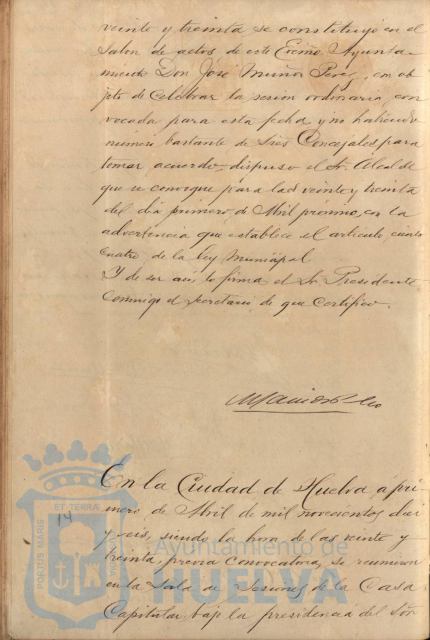 veinte y treinta se constituyó en el
Salon de actos de este Excmo. Ayunta-
miento Don José Muñoz Perez, con ob-
jeto de Celebrar la sesion ordinaria con-
vocada para esta fecha y no habiendo
numero bastante de Sres Concejales para
tomar acuerdo, dispuso el Sr. Alcalde
que se convoque para las veinte y treinta
del dia primero de Abril proximo, con la
advertencia que establece el articulo ciento
cuatro de la Ley Municipal.
Y de ser asi lo firma el Sr. Presidente
conmigo el Secretario de que certifico.
En la Ciudad de Huelva á pri-
mero de Abril de mil novecientos diez
y seis, siendo la hora de las veinte y
treinta, previa convocatoria, se reunieron
en la Sala de Sesiones de la Casa
Capitular bajo la presidencia del Señ
14
PORTUS MARIS ET TERRAE
Ayuntamiento de
HUELVA